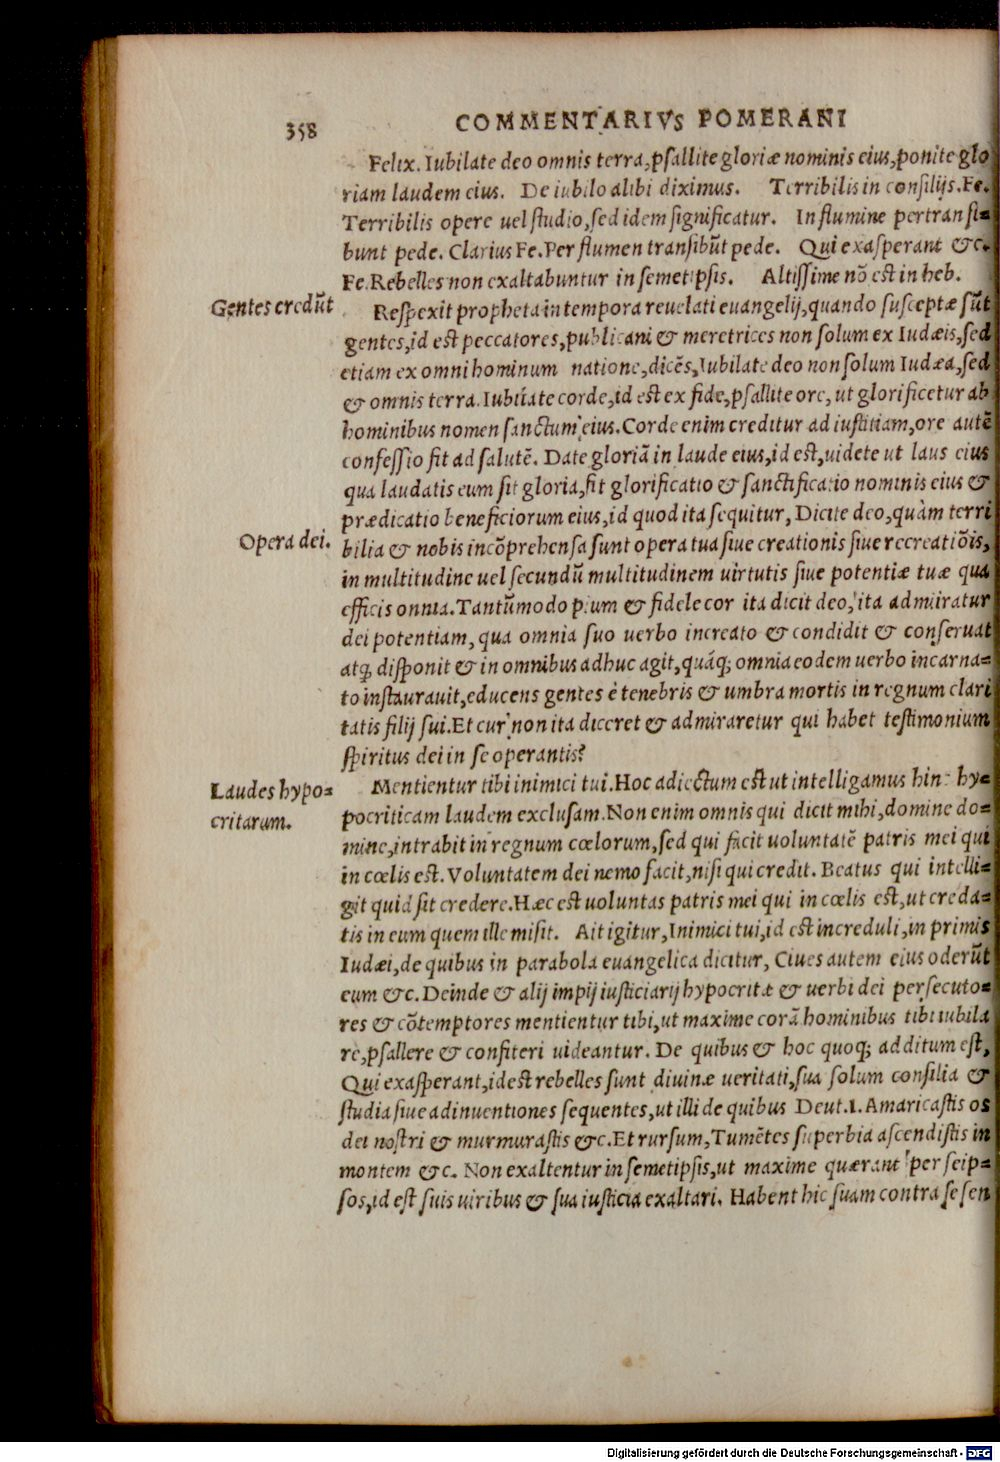 358
COMMENTARIVS POMERANI
Felix. Iubilate deo omnis terra, psallite gloriæ nominis eius, ponite glo
riam laudem eius. De iubilo alibi diximus. Terribilis in consilijs. Fe.
Terribilis opere uel studio, sed idem significatur. In flumine pertransi=
bunt pede. Clarius Fe. Per flumen transibūt pede. Qui exasperant &c.
Fe. Rebelles non exaltabuntur in semetipsis. Altissime nō est in heb.
Gentes credūt
Respexit propheta in tempora reuelati euangelij, quando susceptæ sūt
gentes, id est peccatores, publicani & meretrices non solum ex Iudæis, sed
etiam ex omni hominum natione, dicēs, Iubilate deo non solum Iudæa, sed
& omnis terra. Iubilate corde, id est ex fide, psallite ore, ut glorificetur ab
hominibus nomen sanctum eius. Corde enim creditur ad iustitiam, ore autē
confessio fit ad salutē. Date gloriā in laude eius, id est, uidete ut laus eius
qua laudatis eum sit gloria, sit glorificatio & sanctificatio nominis eius &
prædicatio beneficiorum eius, id quod ita sequitur, Dicite deo, quàm terri
Opera dei.
bilia & nobis incōprehensa sunt opera tua siue creationis siue recreatiōis,
in multitudine uel secundū multitudinem uirtutis siue potentiæ tuæ qua
efficis omnia. Tantūmodo pium & fidele cor ita dicit deo, ita admiratur
dei potentiam, qua omnia suo uerbo increato & condidit & conseruat
atq; disponit & in omnibus adhuc agit, quáq; omnia eodem uerbo incarna=
to instaurauit, educens gentes è tenebris & umbra mortis in regnum clari
tatis filij sui. Et cur non ita diceret & admiraretur qui habet testimonium
spiritus dei in se operantis?
Laudes hypo=
critarum.
Mentientur tibi inimici tui. Hoc adiectum est ut intelligamus hinc hy=
pocriticam laudem exclusam. Non enim omnis qui dicit mihi, domine do=
mine, intrabit in regnum cœlorum, sed qui facit uoluntatē patris mei qui
in cœlis est. Voluntatem dei nemo facit, nisi qui credit. Beatus qui intelli=
git quid sit credere. Hæc est uoluntas patris mei qui in cœlis est, ut creda=
tis in eum quem ille misit. Ait igitur, Inimici tui, id est increduli, in primis
Iudæi, de quibus in parabola euangelica dicitur, Ciues autem eius oderūt
eum &c. Deinde & alij impij iusticiarij hypocritæ & uerbi dei persecuto=
res & cōtemptores mentientur tibi, ut maxime corā hominibus tibi iubila
re, psallere & confiteri uideantur. De quibus & hoc quoq; additum est,
Qui exasperant, id est rebelles sunt diuinæ ueritati, sua solum consilia &
studia siue adinuentiones sequentes, ut illi de quibus Deut. 1. Amaricastis os
dei nostri & murmurastis &c. Et rursum, Tumētes superbia ascendistis in
montem &c. Non exaltentur in semetipsis, ut maxime quærant per seip=
sos, id est suis uiribus & sua iusticia exaltari. Habent hic suam contra se sen
Digitalisierung gefördert durch die Deutsche Forschungsgemeinschaft - DFG